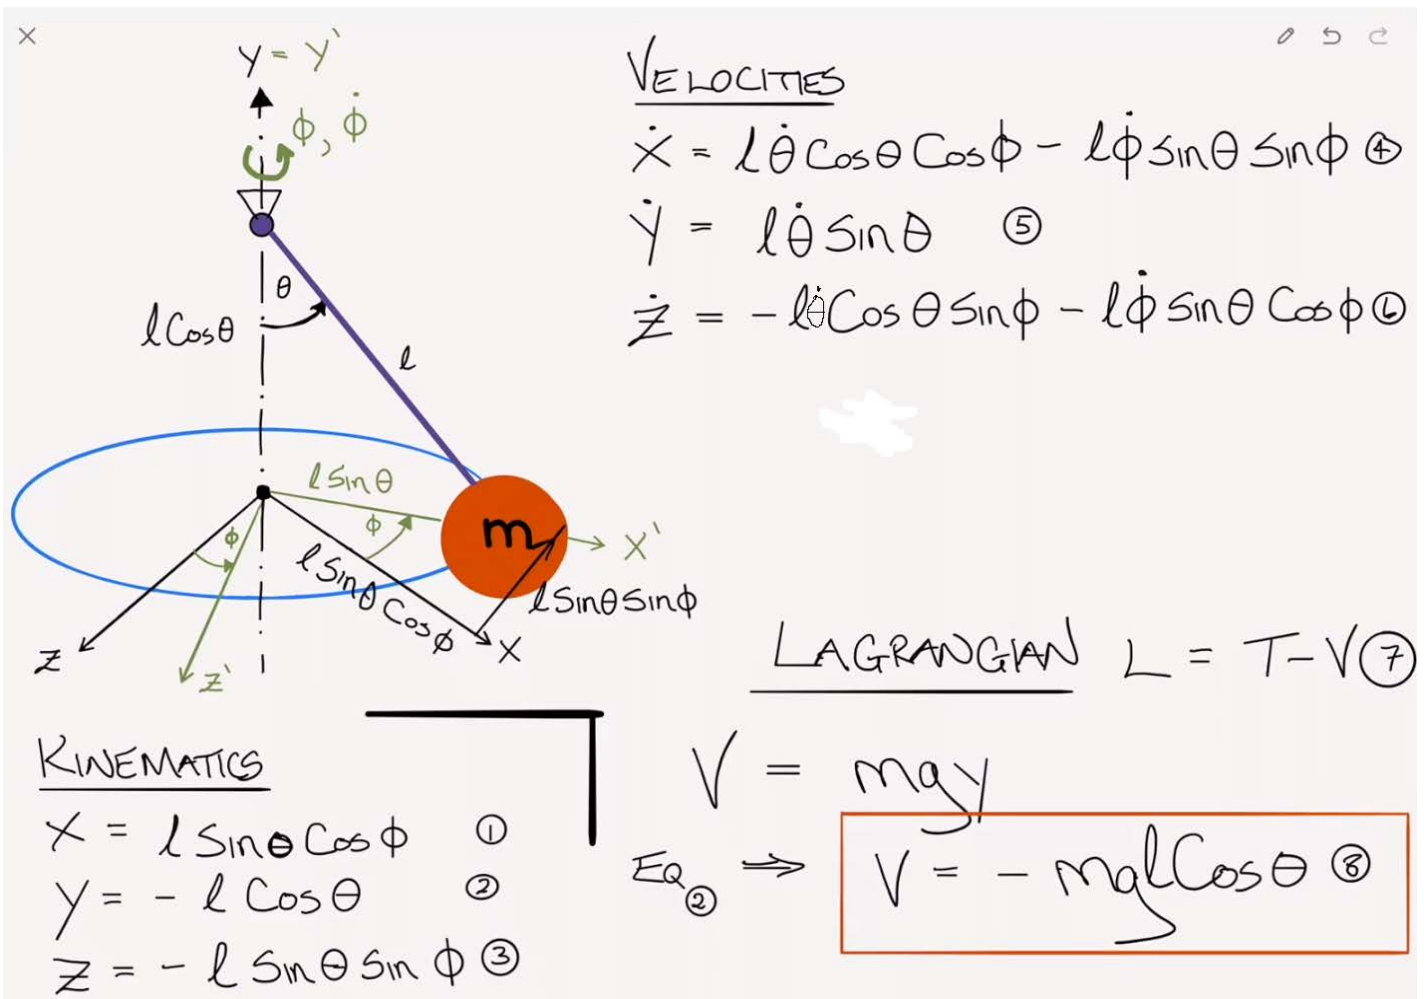 Y = Y'
ϕ, ϕ̇
θ
lCosθ
l
lSinθ
ϕ
ϕ
m
X'
lSinθCosϕ
lSinθSinϕ
X
Z
Z'
KINEMATICS
X = lSinθCosϕ ①
Y = - lCosθ ②
Z = - lSinθSinϕ ③
VELOCITIES
Ẋ = lθ̇CosθCosϕ - lϕ̇SinθSinϕ ④
Ẏ = lθ̇Sinθ ⑤
Ż = - lθ̇CosθSinϕ - lϕ̇SinθCosϕ ⑥
LAGRANGIAN L = T-V ⑦
V = mgy
EQ② ⇒ V = - mglCosθ ⑧